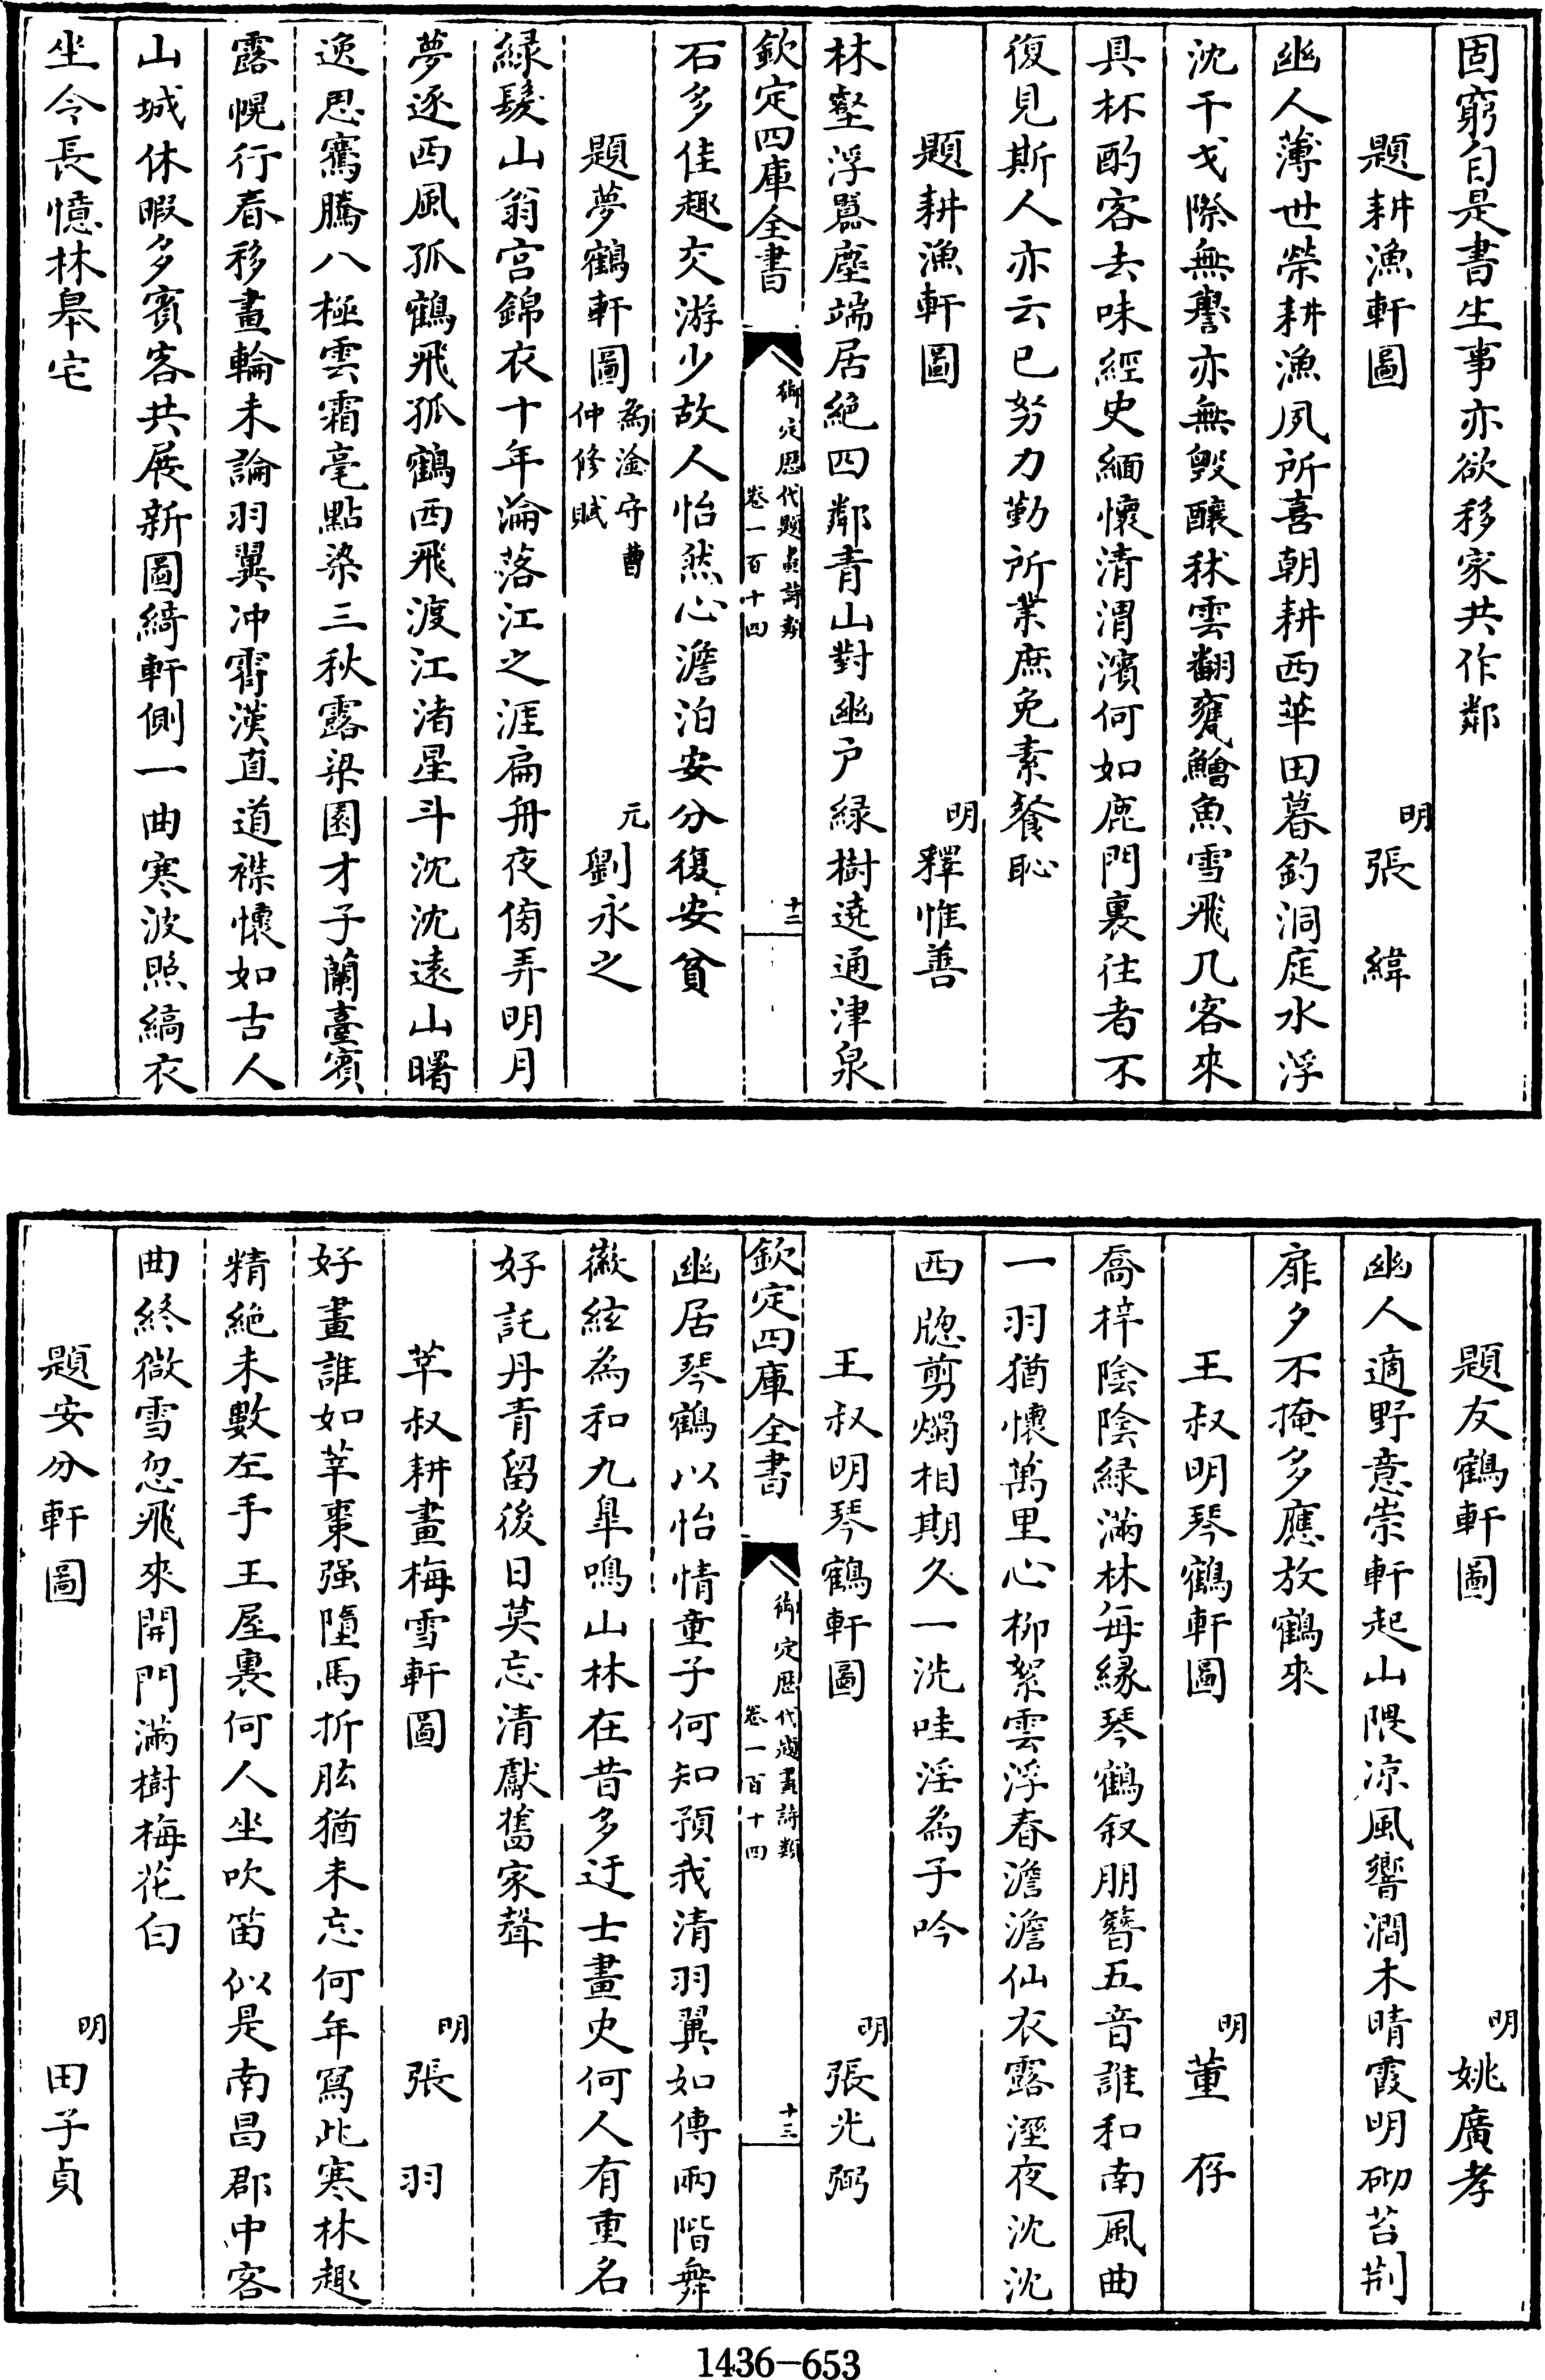 固窮自是書生事亦欲移家共作鄰
題耕漁軒圖　明張緯
幽人薄世榮耕漁夙所喜朝耕西華田暮釣洞庭水浮
沈干戈際無譽亦無毀釀秫雲翻甕鱠魚雪飛几客來
具杯酌客去味經史緬懷清渭濱何如鹿門裏往者不
復見斯人亦云已努力勤所業庶免素餐恥
題耕漁軒圖　明釋惟善
林壑浮囂塵端居絕四鄰青山對幽户緑樹遶通津泉
欽定四庫全書　御定歴代題畫詩類卷一百十四　十二
石多佳趣交游少故人怡然心澹泊安分復安貧
題夢鶴軒圖為淦守曹仲修賦　元劉永之
緑髮山翁宫錦衣十年淪落江之涯扁舟夜傍弄明月
夢逐西風孤鶴飛孤鶴西飛渡江渚星斗沈沈遠山曙
逸思騫騰八極雲霜毫點染三秋露梁園才子蘭臺賓
露幌行春移畫輪未論羽翼冲霄漢直道襟懷如古人
山城休暇多賓客共展新圖綺軒側一曲寒波照縞衣
坐令長憶林皋宅
題友鶴軒圖　明姚廣孝
幽人適野意崇軒起山隈凉風響澗木晴霞明砌苔荆
扉夕不掩多應放鶴來
王叔明琴鶴軒圖　明董存
喬梓陰陰緑滿林每緣琴鶴叙朋簪五音誰和南風曲
一羽猶懷萬里心栁絮雲浮春澹澹仙衣露溼夜沈沈
西牕剪燭相期久一洗哇淫為子吟
王叔明琴鶴軒圖　明張光弼
欽定四庫全書　御定歴代題畫詩類卷一百十四　十三
幽居琴鶴以怡情童子何知預我清羽翼如傳兩階舞
徽絃為和九臯鳴山林在昔多迂士畫史何人有重名
好託丹青留後日莫忘清獻舊家聲
莘叔耕畫梅雪軒圖　明張羽
好畫誰如莘棗强墮馬折肱猶未忘何年寫此寒林趣
精絶未數左手王屋裏何人坐吹笛似是南昌郡中客
曲終微雪忽飛來開門滿樹梅花白
題安分軒圖　明田子貞
1436-653